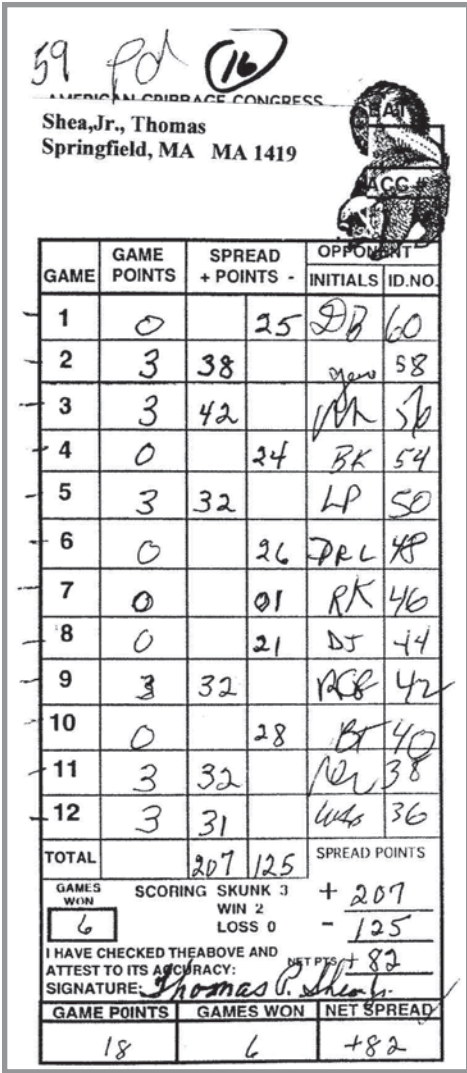 59 pd 16
AMERICAN CRIBBAGE CONGRESS
Shea,Jr., Thomas
Springfield, MA MA 1419
ACC #
GAME GAME POINTS SPREAD + POINTS - OPPONENT INITIALS ID.NO.
1 0 25 DB 60
2 3 38 58
3 3 42 56
4 0 24 BK 54
5 3 32 LP 50
6 0 26 DRL 48
7 0 01 RK 46
8 0 21 DJ 44
9 3 32 42
10 0 28 BT 40
11 3 32 38
12 3 31 36
TOTAL 207 125 SPREAD POINTS
GAMES WON SCORING SKUNK 3 + 207
6 WIN 2
LOSS 0 - 125
I HAVE CHECKED THEABOVE AND
ATTEST TO ITS ACCURACY: NET PTS + 82
SIGNATURE: Thomas P. Shea Jr.
GAME POINTS GAMES WON NET SPREAD
18 6 +82